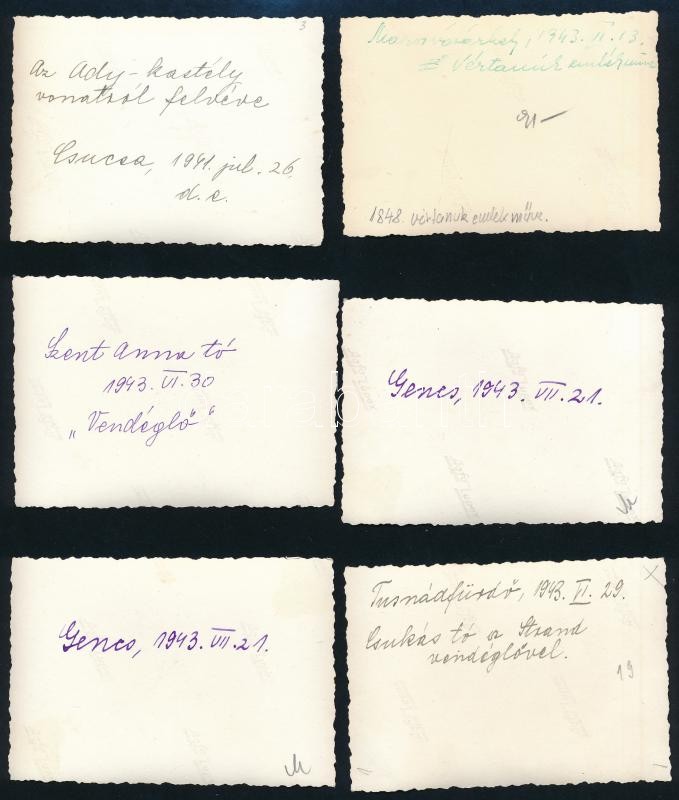 3
Az Ady-kastély
vonatról felvéve
Csucsa, 1941. jul. 26.
d. e.
Marosvásárhely, 1943. II. 13.
Vértanúk emlékműve
1848. vértanuk emlékműve.
Szent Anna tó
1943. VI. 30
„Vendéglő"
Gencs, 1943. VII. 21.
Gencs, 1943. VII. 21.
Tusnádfürdő, 1943. VI. 29.
Csukás tó a Strand
vendéglővel.
19